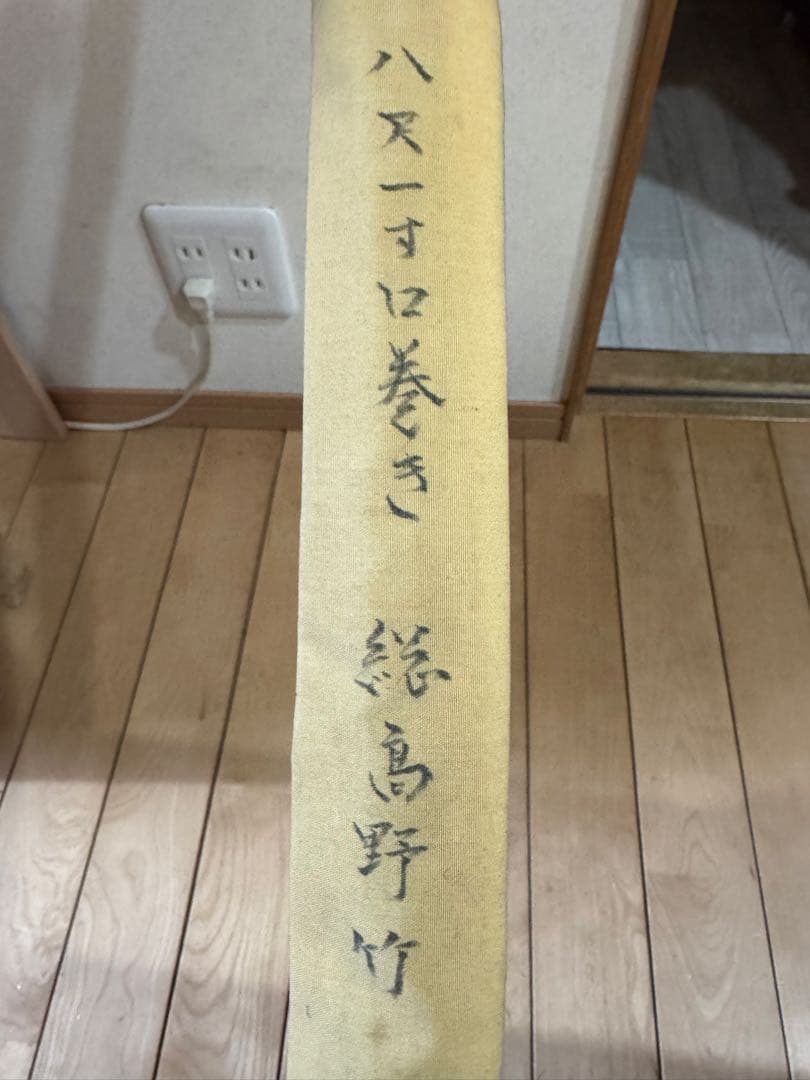 八尺一寸口巻き 総高野竹